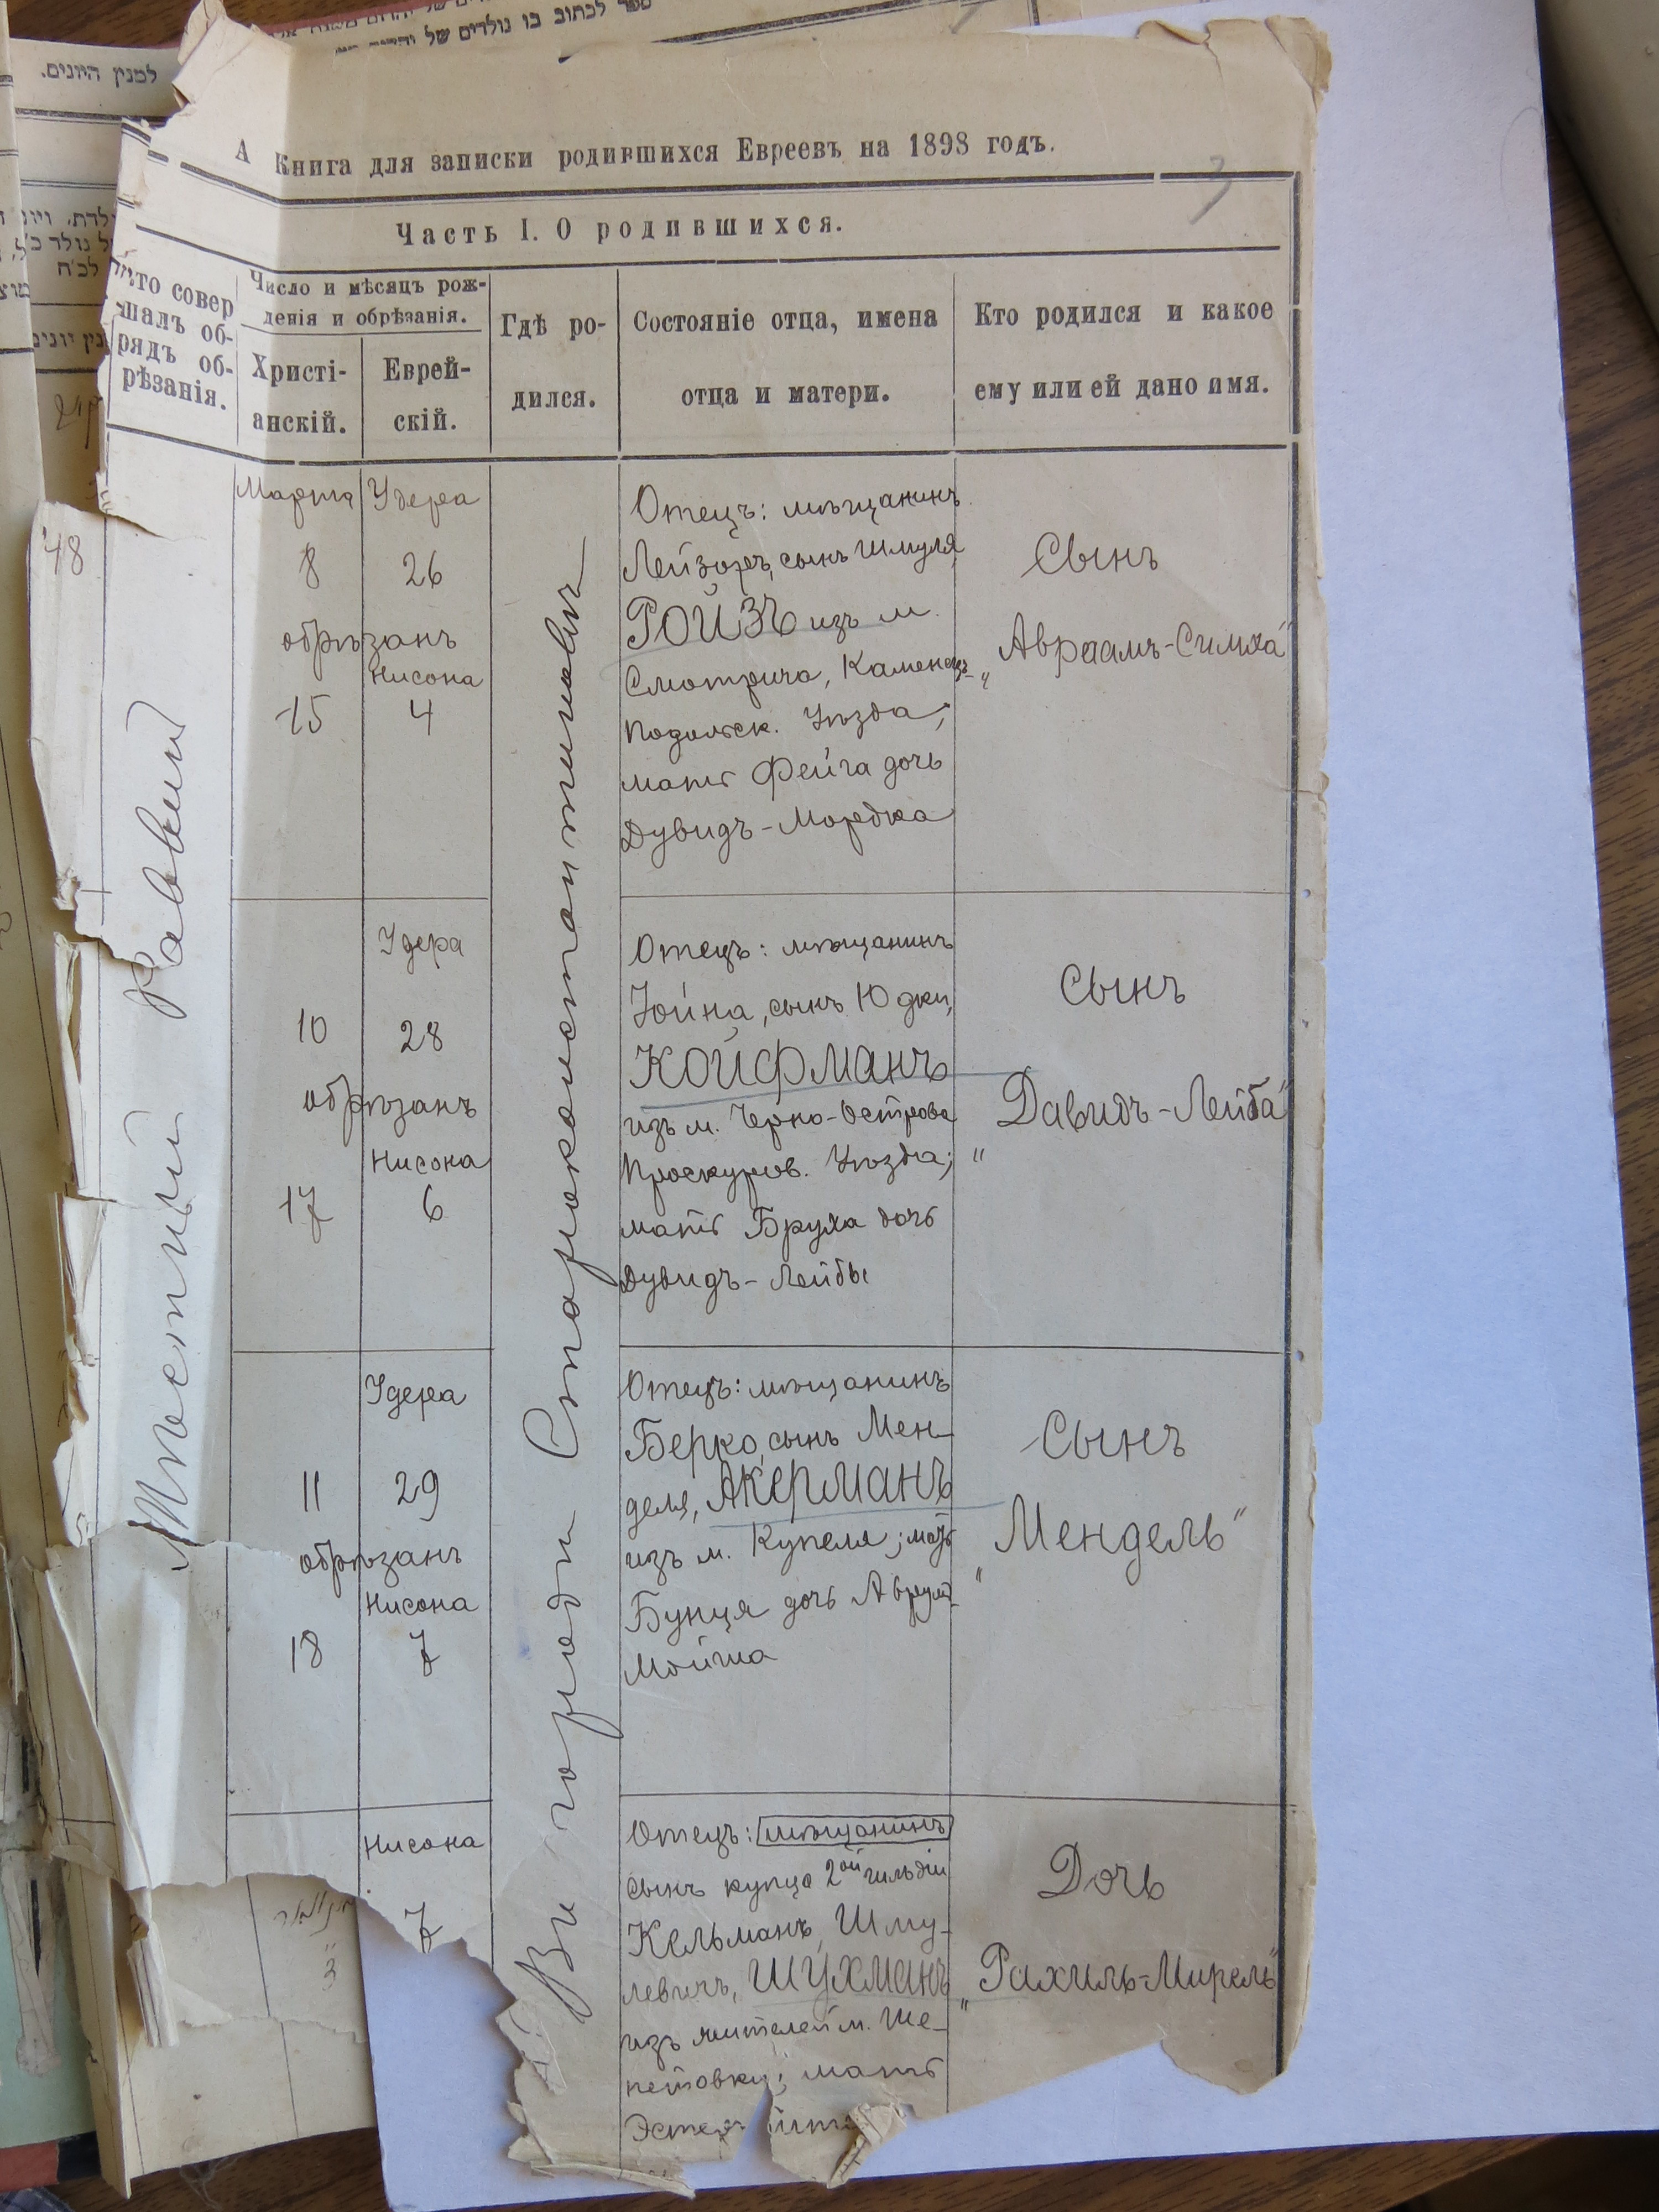 ספר לכתוב בו נולדים של יהודים
למנין היונים.
А Книга для записки родившихся Евреевъ на 1898 годъ.
Часть I. О родившихся.
Кто совер
шалъ об-
рядъ об-
рѣзанія.
Число и мѣсяцъ рож-
денія и обрѣзанія.
Христі-
анскій.
Еврей-
скій.
Гдѣ ро-
дился.
Состояніе отца, имена
отца и матери.
Кто родился и какое
ему или ей дано имя.
48
Мѣстный Раввинъ
Въ городѣ Староконстантиновѣ
Марта
8
обрѣзанъ
15
Удера
26
Нисона
4
Отецъ: мѣщанинъ
Лейзоръ, сынъ Шмуля
РОЙЗЪ изъ м.
Смотрича, Каменец-
Подольск. Уѣзда;
мать Фейга дочь
Дувидъ-Мордка
Сынъ
„Авраамъ-Симха"
10
обрѣзанъ
17
Удера
28
Нисона
6
Отецъ: мѣщанинъ
Іойна, сынъ Юдки,
КОЙФМАНЪ
изъ м. Черно-Острова
Проскуров. Уѣзда;
мать Бруха дочь
Дувидъ-Лейбы
Сынъ
„Давидъ-Лейба"
11
обрѣзанъ
18
Удера
29
Нисона
7
Отецъ: мѣщанинъ
Берко, сынъ Мен-
деля, АКЕРМАНЪ
изъ м. Купеля; мать
Бунця дочь Аврум-
Мойша
Сынъ
„Мендель"
Нисона
7
Отецъ: мѣщанинъ
сынъ купца 2ой гильдіи
Кельманъ Шму-
левичъ, ШУХМАНЪ
изъ жителей м. Ше-
петовки; мать
Дочь
„Рахиль-Мирель"